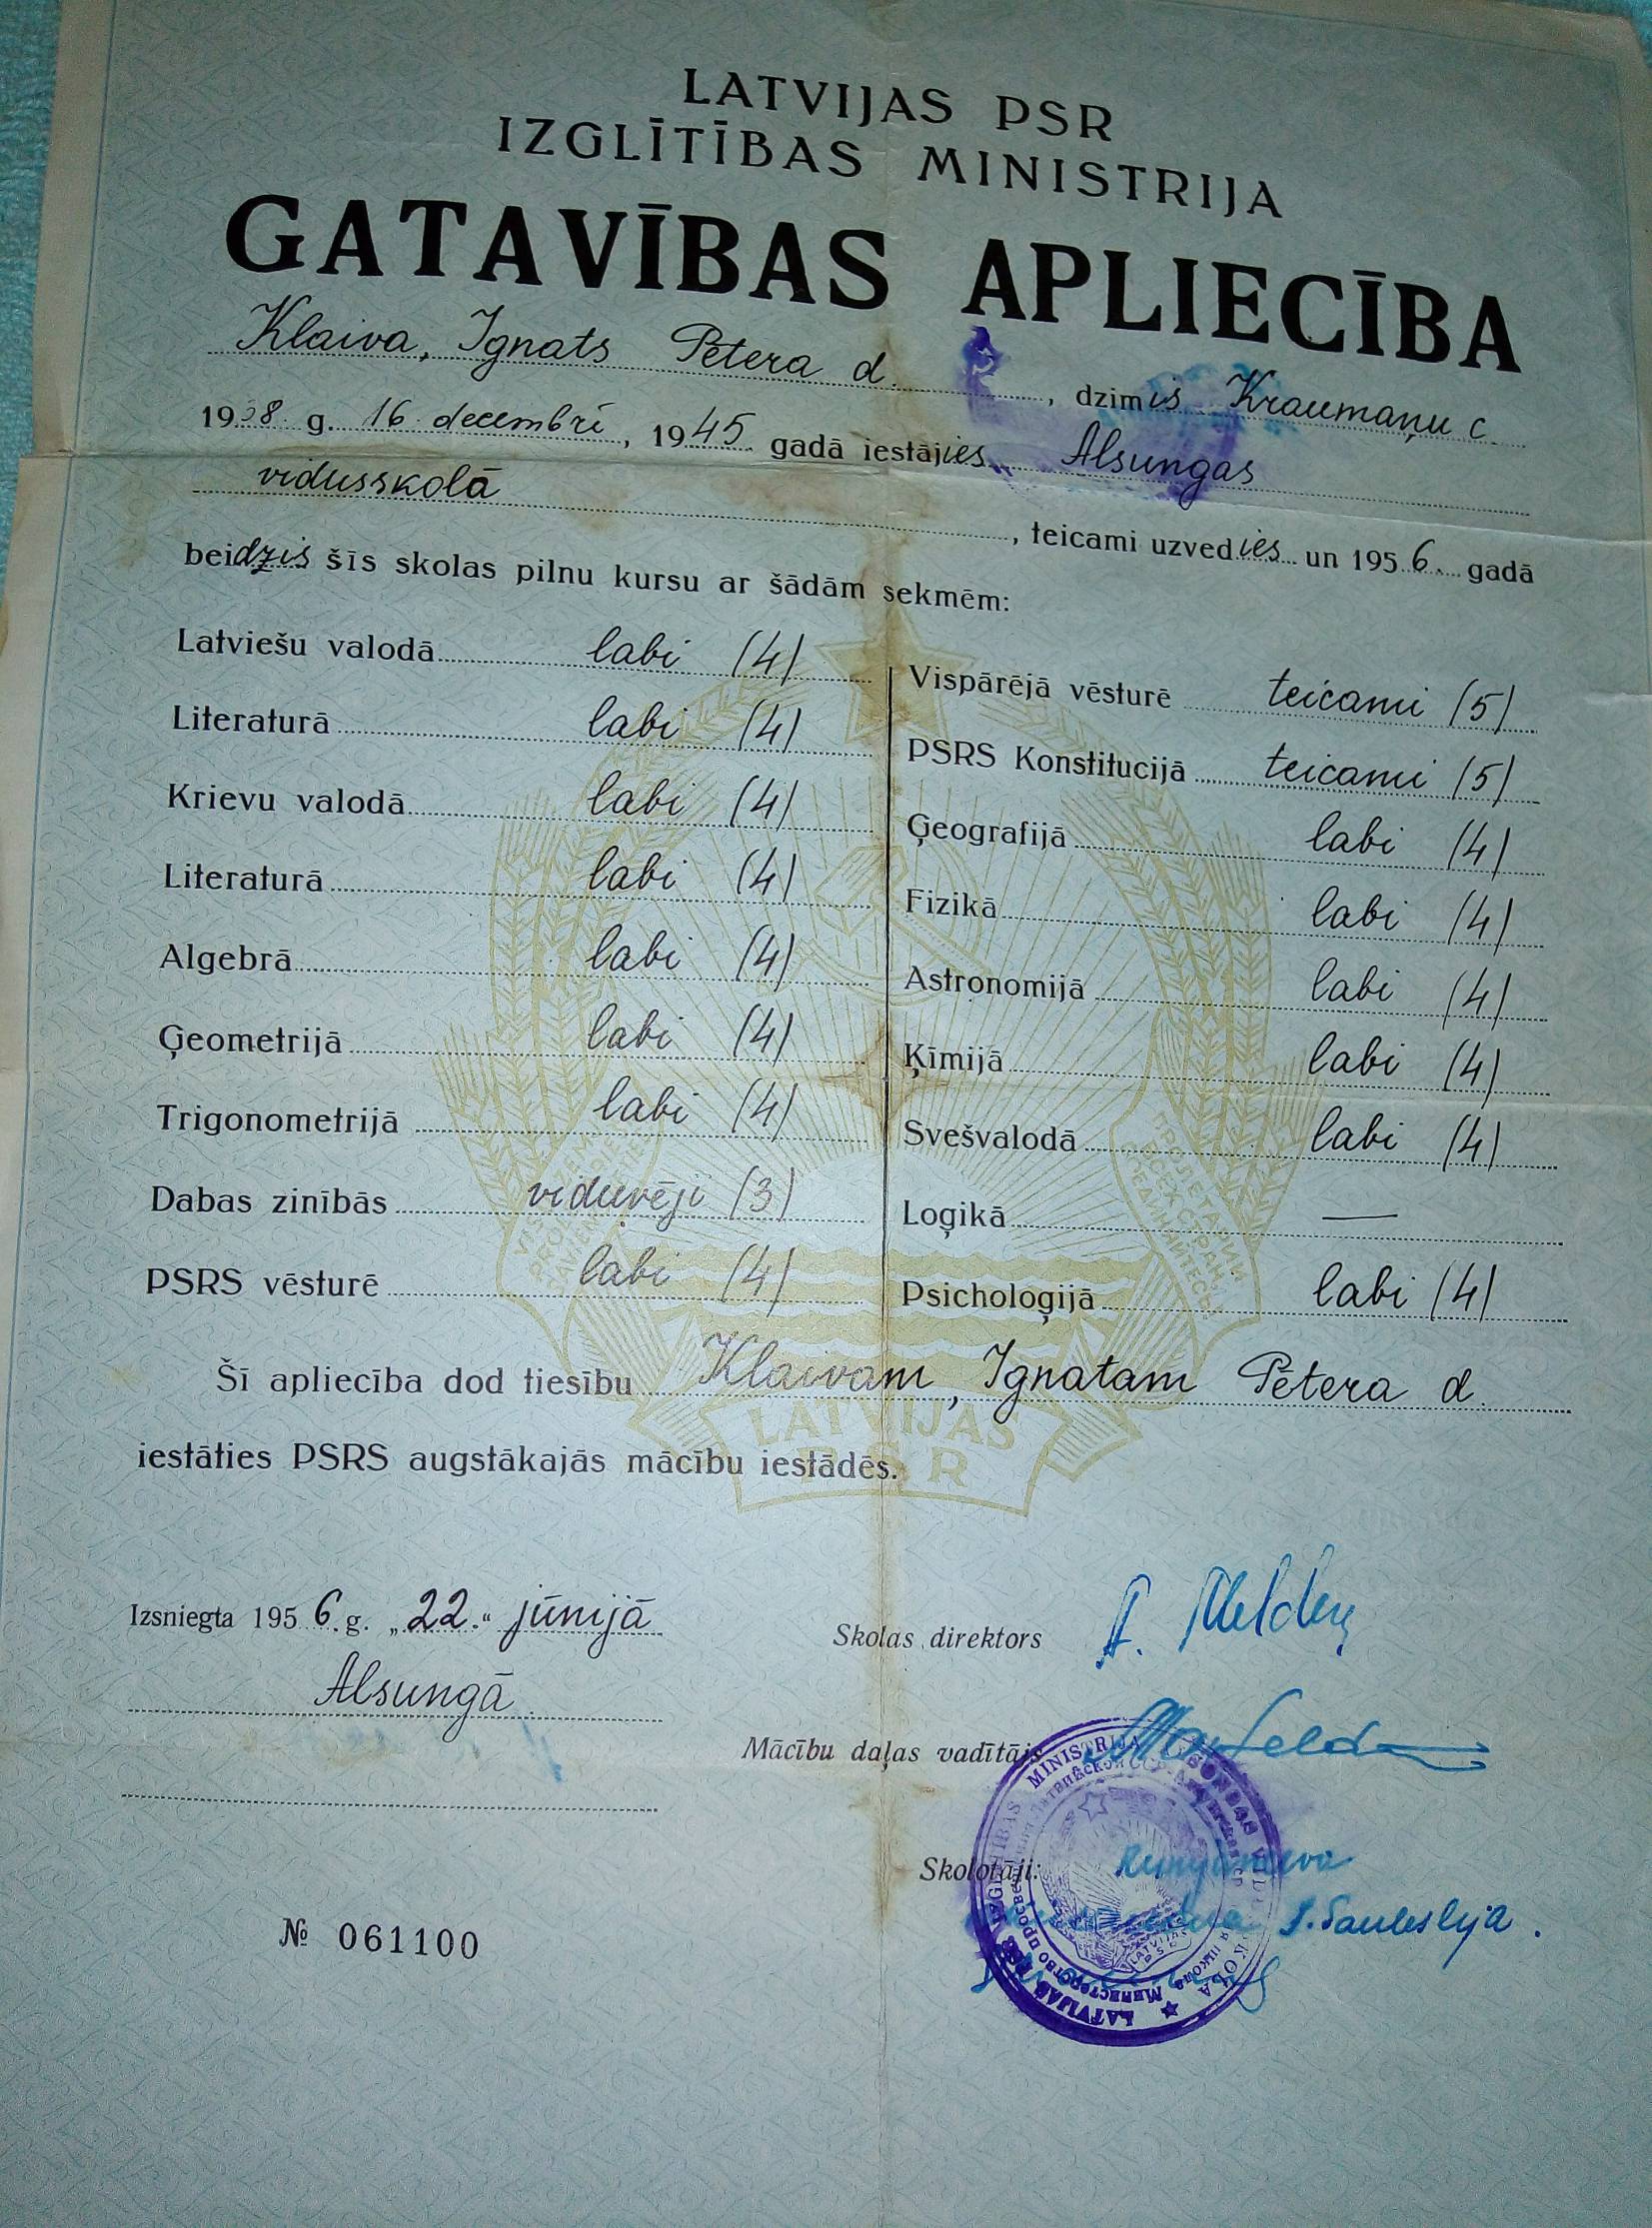 LATVIJAS PSR
IZGLĪTĪBAS MINISTRIJA
GATAVĪBAS APLIECĪBA
Klaiva, Ignats Pētera d. , dzimis Kraumaņu c.
1938. g. 16. decembrī, 1945. gadā iestājies Alsungas
vidusskolā , teicami uzvedies un 1956. gadā
beidzis šīs skolas pilnu kursu ar šādām sekmēm:
Latviešu valodā labi (4)
Literaturā labi (4)
Krievu valodā labi (4)
Literaturā labi (4)
Algebrā labi (4)
Ģeometrijā labi (4)
Trigonometrijā labi (4)
Dabas zinībās viduvēji (3)
PSRS vēsturē labi (4)
Vispārējā vēsturē teicami (5)
PSRS Konstitucijā teicami (5)
Ģeografijā labi (4)
Fizikā labi (4)
Astronomijā labi (4)
Ķīmijā labi (4)
Svešvalodā labi (4)
Loģikā —
Psicholoģijā labi (4)
Šī apliecība dod tiesību Klaivam, Ignatam Pētera d.
iestāties PSRS augstākajās mācību iestādēs.
LATVIJAS
PSR
Izsniegta 1956. g. „22.“ jūnijā
Alsungā
Skolas direktors
Mācību daļas vadītājs
Skolotāji:
№ 061100
LATVIJAS PSR IZGLĪTĪBAS MINISTRIJA